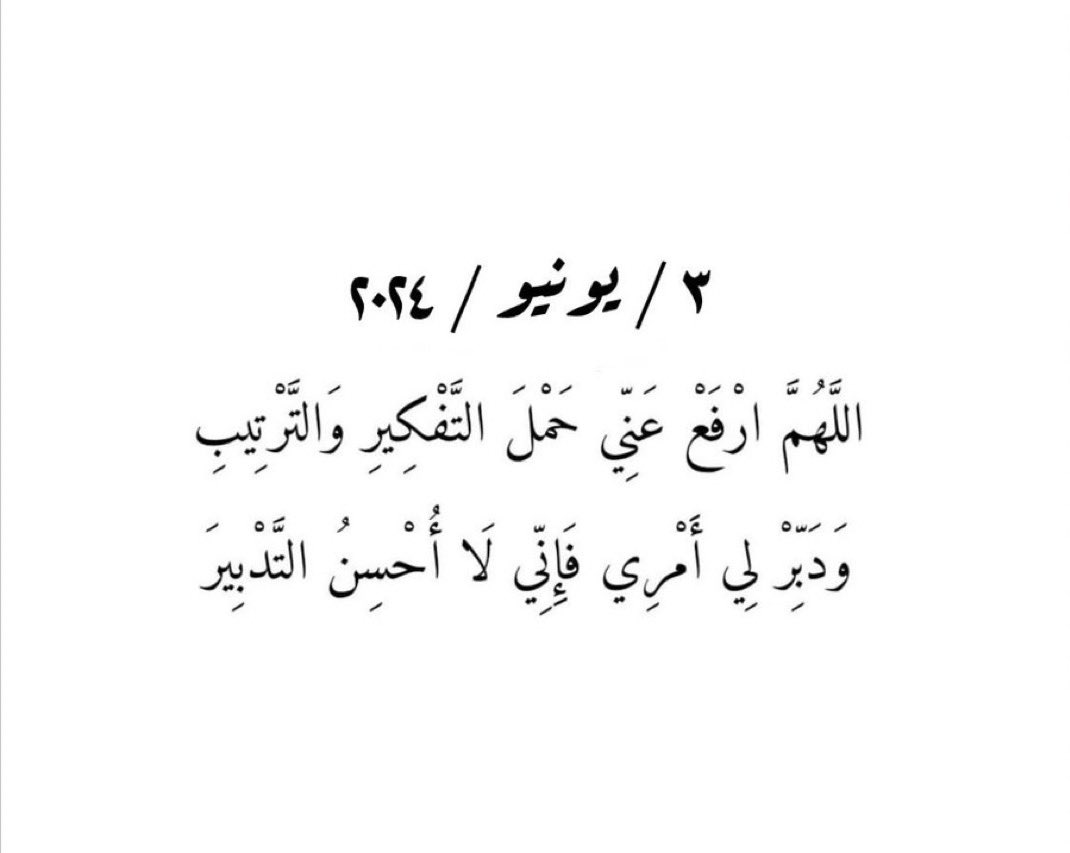 ٣ / يونيو / ٢٠٢٤
اللَّهُمَّ ارْفَعْ عَنِّي حَمْلَ التَّفْكِيرِ وَالتَّرْتِيبِ
وَدَبِّرْ لِي أَمْرِي فَإِنِّي لَا أُحْسِنُ التَّدْبِيرَ